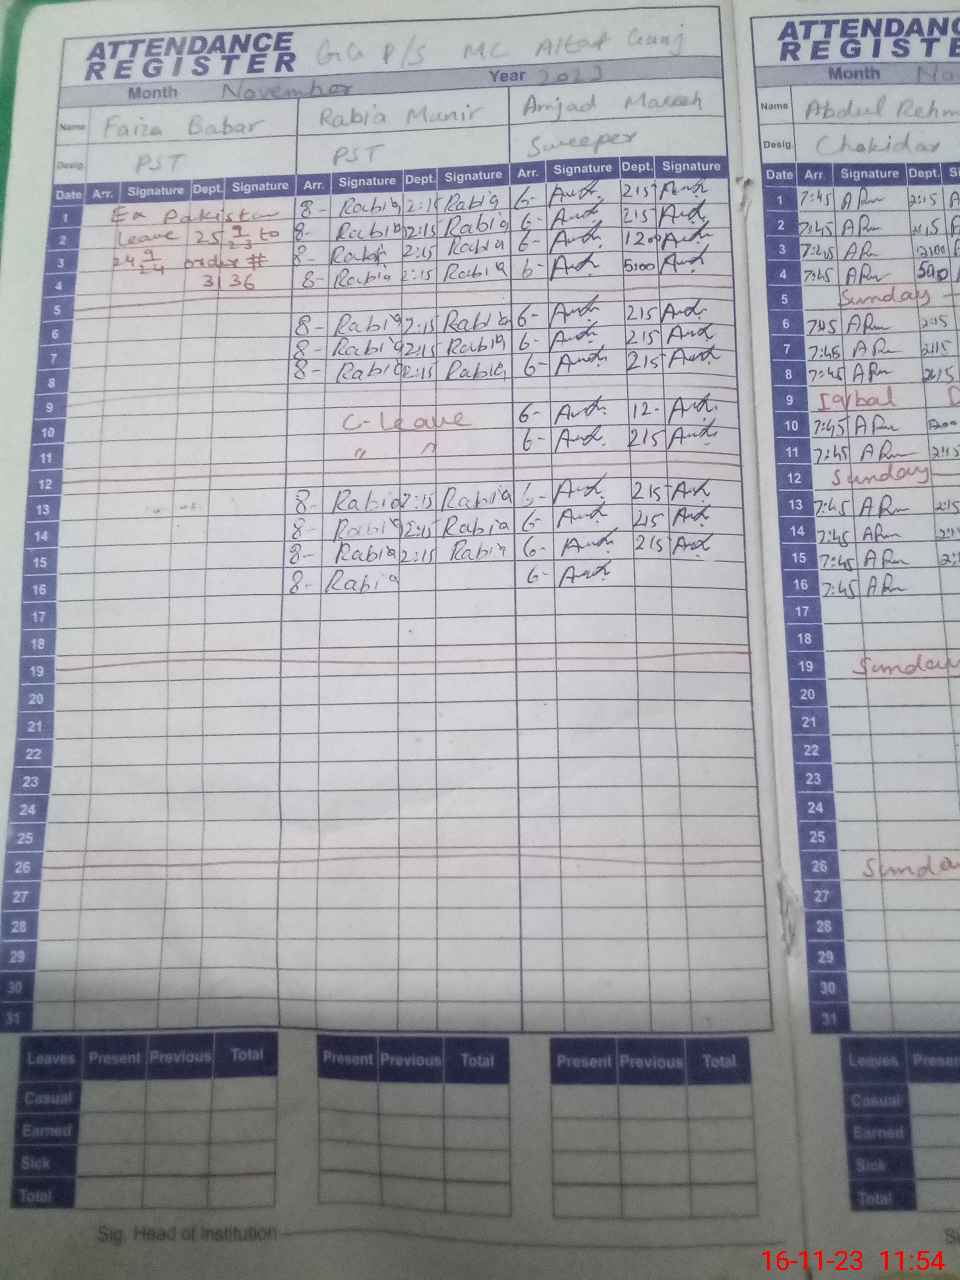 ATTENDANCE REGISTER GG P/S MC Altaf Gunj
Month November Year 2023
Name Faiza Babar Rabia Munir Amjad
Desig. PST PST Sweeper
Date Arr. Signature Dept. Signature Arr. Signature Dept. Signature Arr. Signature Dept. Signature
1 Ex Pakistan 8- Rabia 2:15 Rabia 6- 215
2 leave 25 9/23 to 8- Rabia 2:15 Rabia 6- 215
3 24 9/24 order # 8- Rabia 2:15 Rabia 6- 1200
4 3136 8- Rabia 2:15 Rabia 6- 5:00
5
6 8- Rabia 2:15 Rabia 6- 215
7 8- Rabia 2:15 Rabia 6- 215
8 8- Rabia 2:15 Rabia 6- 215
9
10 C-leave 6- 12-
11 " " 6- 215
12
13 8- Rabia 2:15 Rabia 6- 215
14 8- Rabia 2:15 Rabia 6- 215
15 8- Rabia 2:15 Rabia 6- 215
16 8- Rabia 6-
17
18
19
20
21
22
23
24
25
26
27
28
29
30
31
Leaves Present Previous Total Present Previous Total Present Previous Total
Casual
Earned
Sick
Total
Sig. Head of Institution
ATTENDANC
REGISTE
Month
Name Abdul Rehm
Desig. Chokidar
Date Arr Signature Dept.
1 7:45 2:15
2 7:45 2:15
3 7:45 12:00
4 7:45 5:00
5 Sunday
6 7:45 2:15
7 7:45 2:15
8 7:45 2:15
9 Iqbal D
10 7:45 12:00
11 7:45 2:15
12 Sunday
13 7:45 2:15
14 7:45
15 7:45
16 7:45
17
18
19 Sunday
20
21
22
23
24
25
26 Sunda
27
28
29
30
31
Leaves Presen
Casual
Earned
Sick
Total
16-11-23 11:54